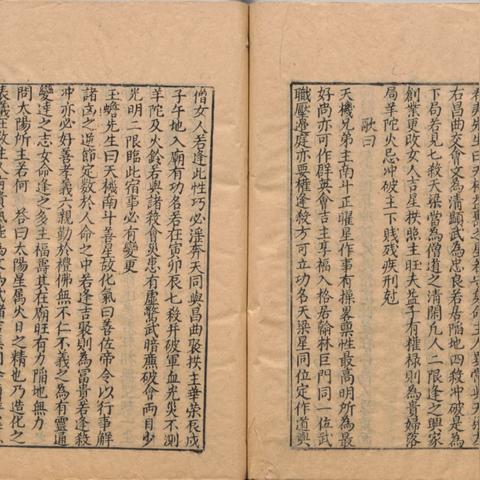 右昌曲交會文為清顯武為忠良若居陷地四殺冲破是為
下局若見七殺天梁當為僧道之清閑凡人二限逢之興家
創業更改女人吉星拱照主旺夫益子有權祿則為貴婦落
局羊陀火忌冲破主下賤殘疾刑尅
歌曰
天機兄弟主南斗正曜星作事有操畧禀性最高明所為最
好尚亦可作群英會吉主享福入格居翰林巨門同一位武
職壓邊庭亦要權逢殺方可立功名天梁星同位定作道與
僧女人若逢此性巧必淫奔天同與昌曲聚拱主華榮辰戌
子午地入廟有功名若在寅卯辰七殺并破軍血光災不測
羊陀及火鈴若與諸殺會災患有虛驚武暗廉破會兩目少
光明二限臨此宿事必有變更
玉蟾先生曰天機南斗善星故化氣曰善佐帝令以行事解
諸凶之逆節定數於人命之中若逢吉聚則為富貴若逢殺
冲亦必好善孝義六親勤於禮佛無不仁不義之為有靈通
變達之志女命逢之多主福壽其在廟旺有力陷地無力
問太陽所主若何 答曰太陽星属火日之精也乃造化之